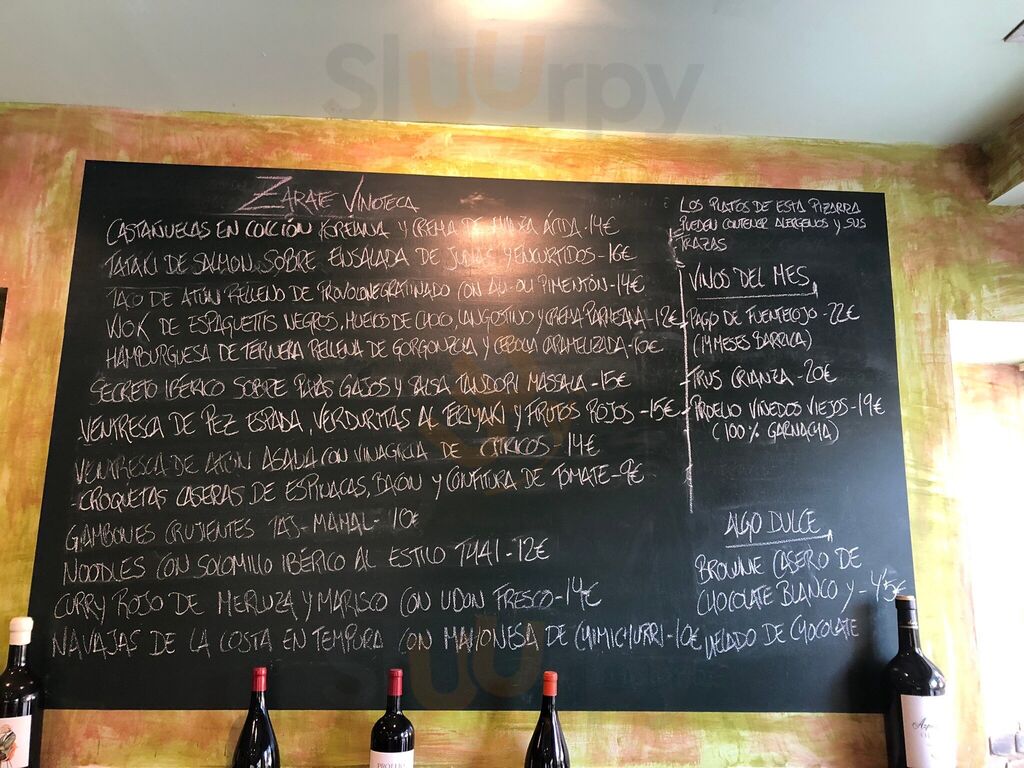 Sluurpy
ZÁRATE VINOTECA
CASTAÑUELAS EN COCCIÓN COREANA Y CREMA DE ÁCIDA - 14€
TATAKI DE SALMON SOBRE ENSALADA DE JUDIAS Y ENCURTIDOS - 16€
TACO DE ATÚN RELLENO DE PROVOLONE GRATINADO CON ALI-OLI PIMENTÓN - 14€
WOK DE ESPAGUETTIS NEGROS, HUEVOS DE CHOCO, LANGOSTINO Y CREMA PARMESANA - 12€
HAMBURGUESA DE TERNERA RELLENA DE GORGONZOLA Y CEBOLLA CARAMELIZADA - 10€
SECRETO IBÉRICO SOBRE PAPAS GAJOS Y SALSA TANDORI MASSALA - 15€
VENTRESCA DE PEZ ESPADA, VERDURITAS AL TERIYAKI Y FRUTOS ROJOS - 15€
VENTRESCA DE ATÚN ASADA CON VINAGRETA DE CITRICOS 14€
CROQUETAS CASERAS DE ESPINACAS, BACON Y CONFITURA DE TOMATE - 9€
GAMBONES CRUJIENTES TAJ-MAHAL - 10€
NOODLES CON SOLOMILLO IBÉRICO AL ESTILO THAI - 12€
CURRY ROJO DE MERLUZA Y MARISCO CON UDON FRESCO - 14€
NAVAJAS DE LA COSTA EN TEMPURA CON MAYONESA DE CHIMICHURRI - 10€
LOS PLATOS DE ESTA PIZARRA
PUEDEN CONTENER ALERGENOS Y SUS
TRAZAS
VINOS DEL MES
PAGO DE FUENTECOJO - 22€
(14 MESES BARRICA)
TRUS CRIANZA - 20€
PROELIO VIÑEDOS VIEJOS - 19€
(100% GARNACHA)
ALGO DULCE
BROWNIE CASERO DE
CHOCOLATE BLANCO Y - 4'5€
HELADO DE CHOCOLATE
PROELIO
Sluurpy